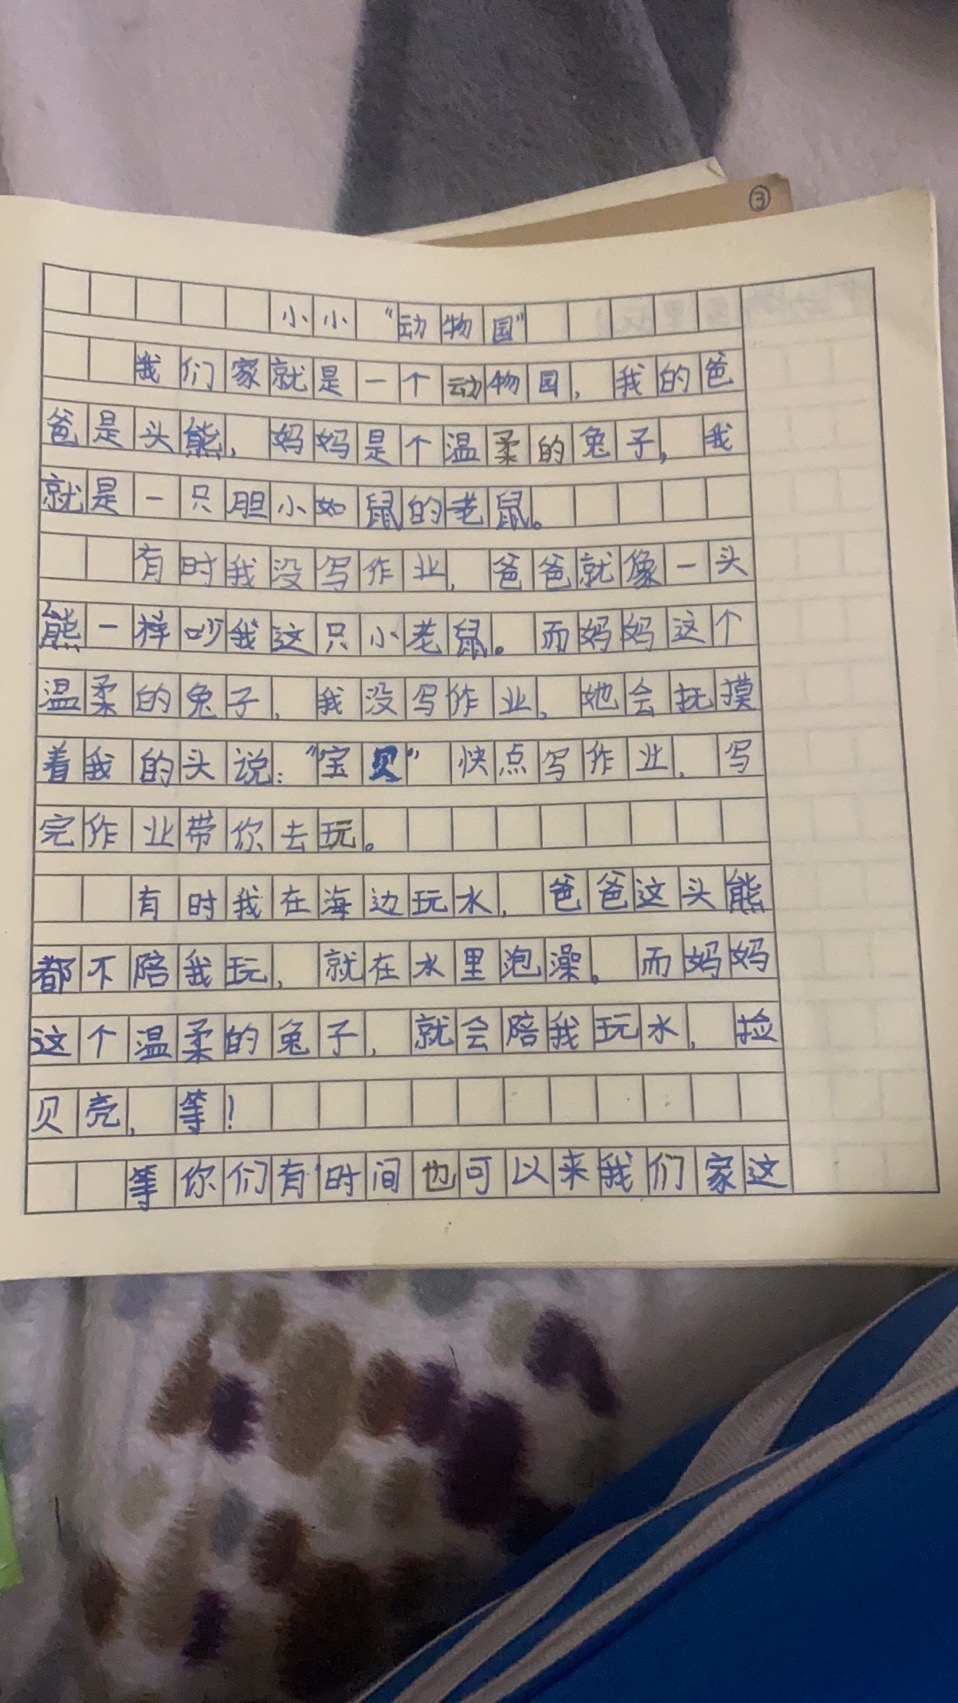 ③
小小“动物园”
我们家就是一个动物园，我的爸
爸是头熊，妈妈是个温柔的兔子，我
就是一只胆小如鼠的老鼠。
有时我没写作业，爸爸就像一头
熊一样吵我这只小老鼠。而妈妈这个
温柔的兔子，我没写作业，她会抚摸
着我的头说：“宝贝”快点写作业，写
完作业带你去玩。
有时我在海边玩水，爸爸这头熊
都不陪我玩，就在水里泡澡。而妈妈
这个温柔的兔子，就会陪我玩水，捡
贝壳，等！
等你们有时间也可以来我们家这